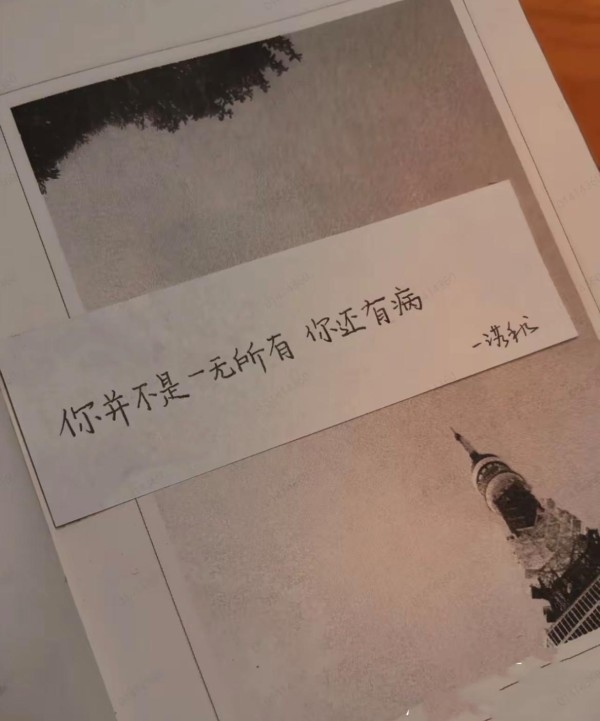 你并不是一无所有 你还有病